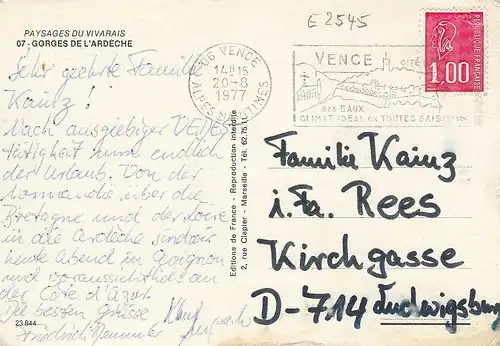 PAYSAGES DU VIVARAIS
07 - GORGES DE L'ARDÈCHE
E 2545
06 VENCE
14H15
20-8
1977
ALPES MARITIMES
VENCE CITÉ
SES EAUX
CLIMAT IDÉAL en TOUTES SAISONS
RÉPUBLIQUE FRANÇAISE
1,00
Sehr geehrte Familie
Kainz !
Nach ausgiebiger
tätigkeit nun endlich
der Urlaub. Von der
Normandie über die
Bretagne und der Loire
in die Ardèche sind wir
heute Abend in
und voraussichtlich an
der Côte d'Azur.
Die besten Grüsse
Friedrich
23 844
Editions de France - Reproduction interdite
2, rue Clapier - Marseille - Tél. 62.75.11
Familie Kainz
i. Fa. Rees
Kirchgasse
D-714 Ludwigsburg